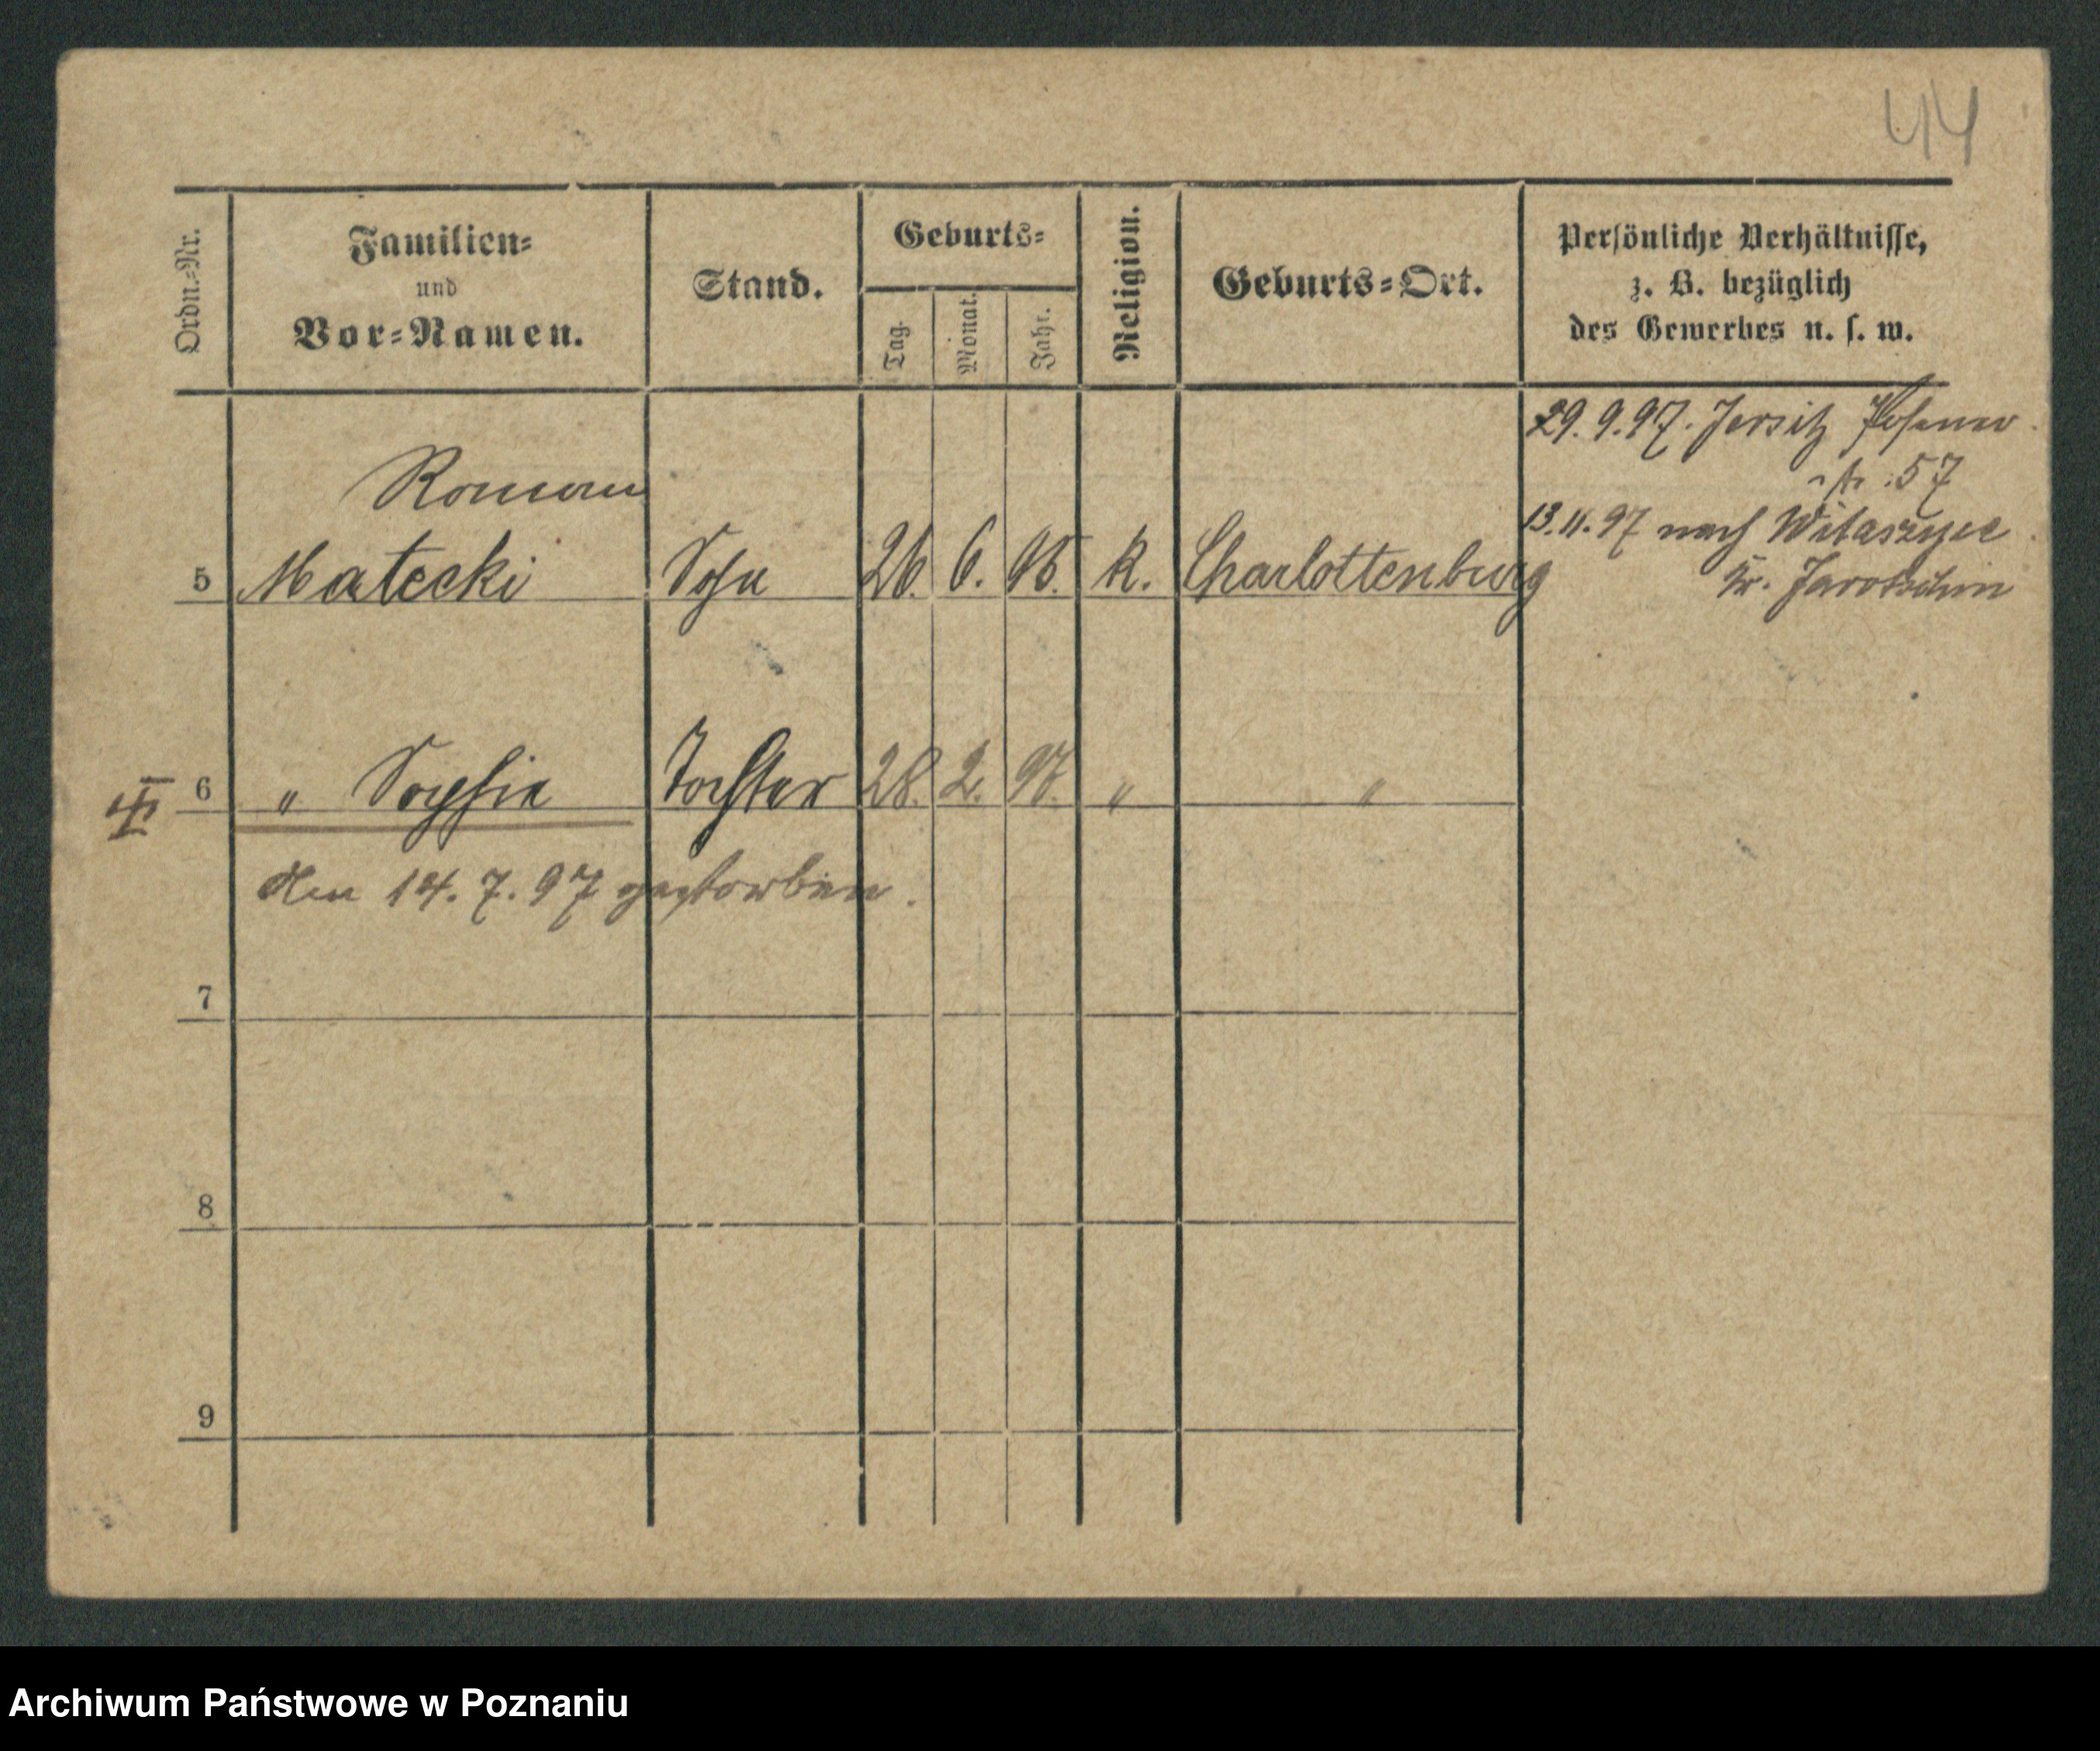 44
Ordn.=Nr.
Familien=
und
Vor=Namen.
Stand.
Geburts=
Tag.
Monat.
Jahr.
Religion.
Geburts=Ort.
Persönliche Verhältnisse,
z. B. bezüglich
des Gewerbes u. s. w.
29. 9. 97. Jersitz Posener
str. 57
13. 11. 97 nach Witaszyce
Kr. Jarotschin
Roman
5 Matecki Sohn 26. 6. 95. K. Charlottenburg
6 " Sophie Tochter 28. 2. 97. " "
den 14. 7. 97 gestorben.
7
8
9
Archiwum Państwowe w Poznaniu